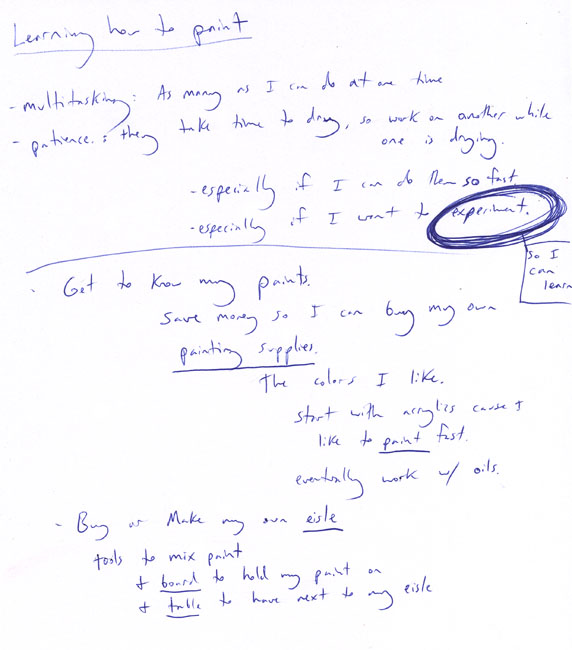 Learning how to paint
- multitasking: As many as I can do at one time
- patience: they take time to dry, so work on another while
one is drying.
- especially if I can do them so fast
- especially if I want to experiment.
so I
can
learn
- Get to know my paints.
save money so I can buy my own
painting supplies.
The colors I like.
start with acrylics cause I
like to paint fast.
eventually work w/ oils.
- Buy or Make my own eisle
tools to mix paint
+ board to hold my paint on
+ table to have next to my eisle